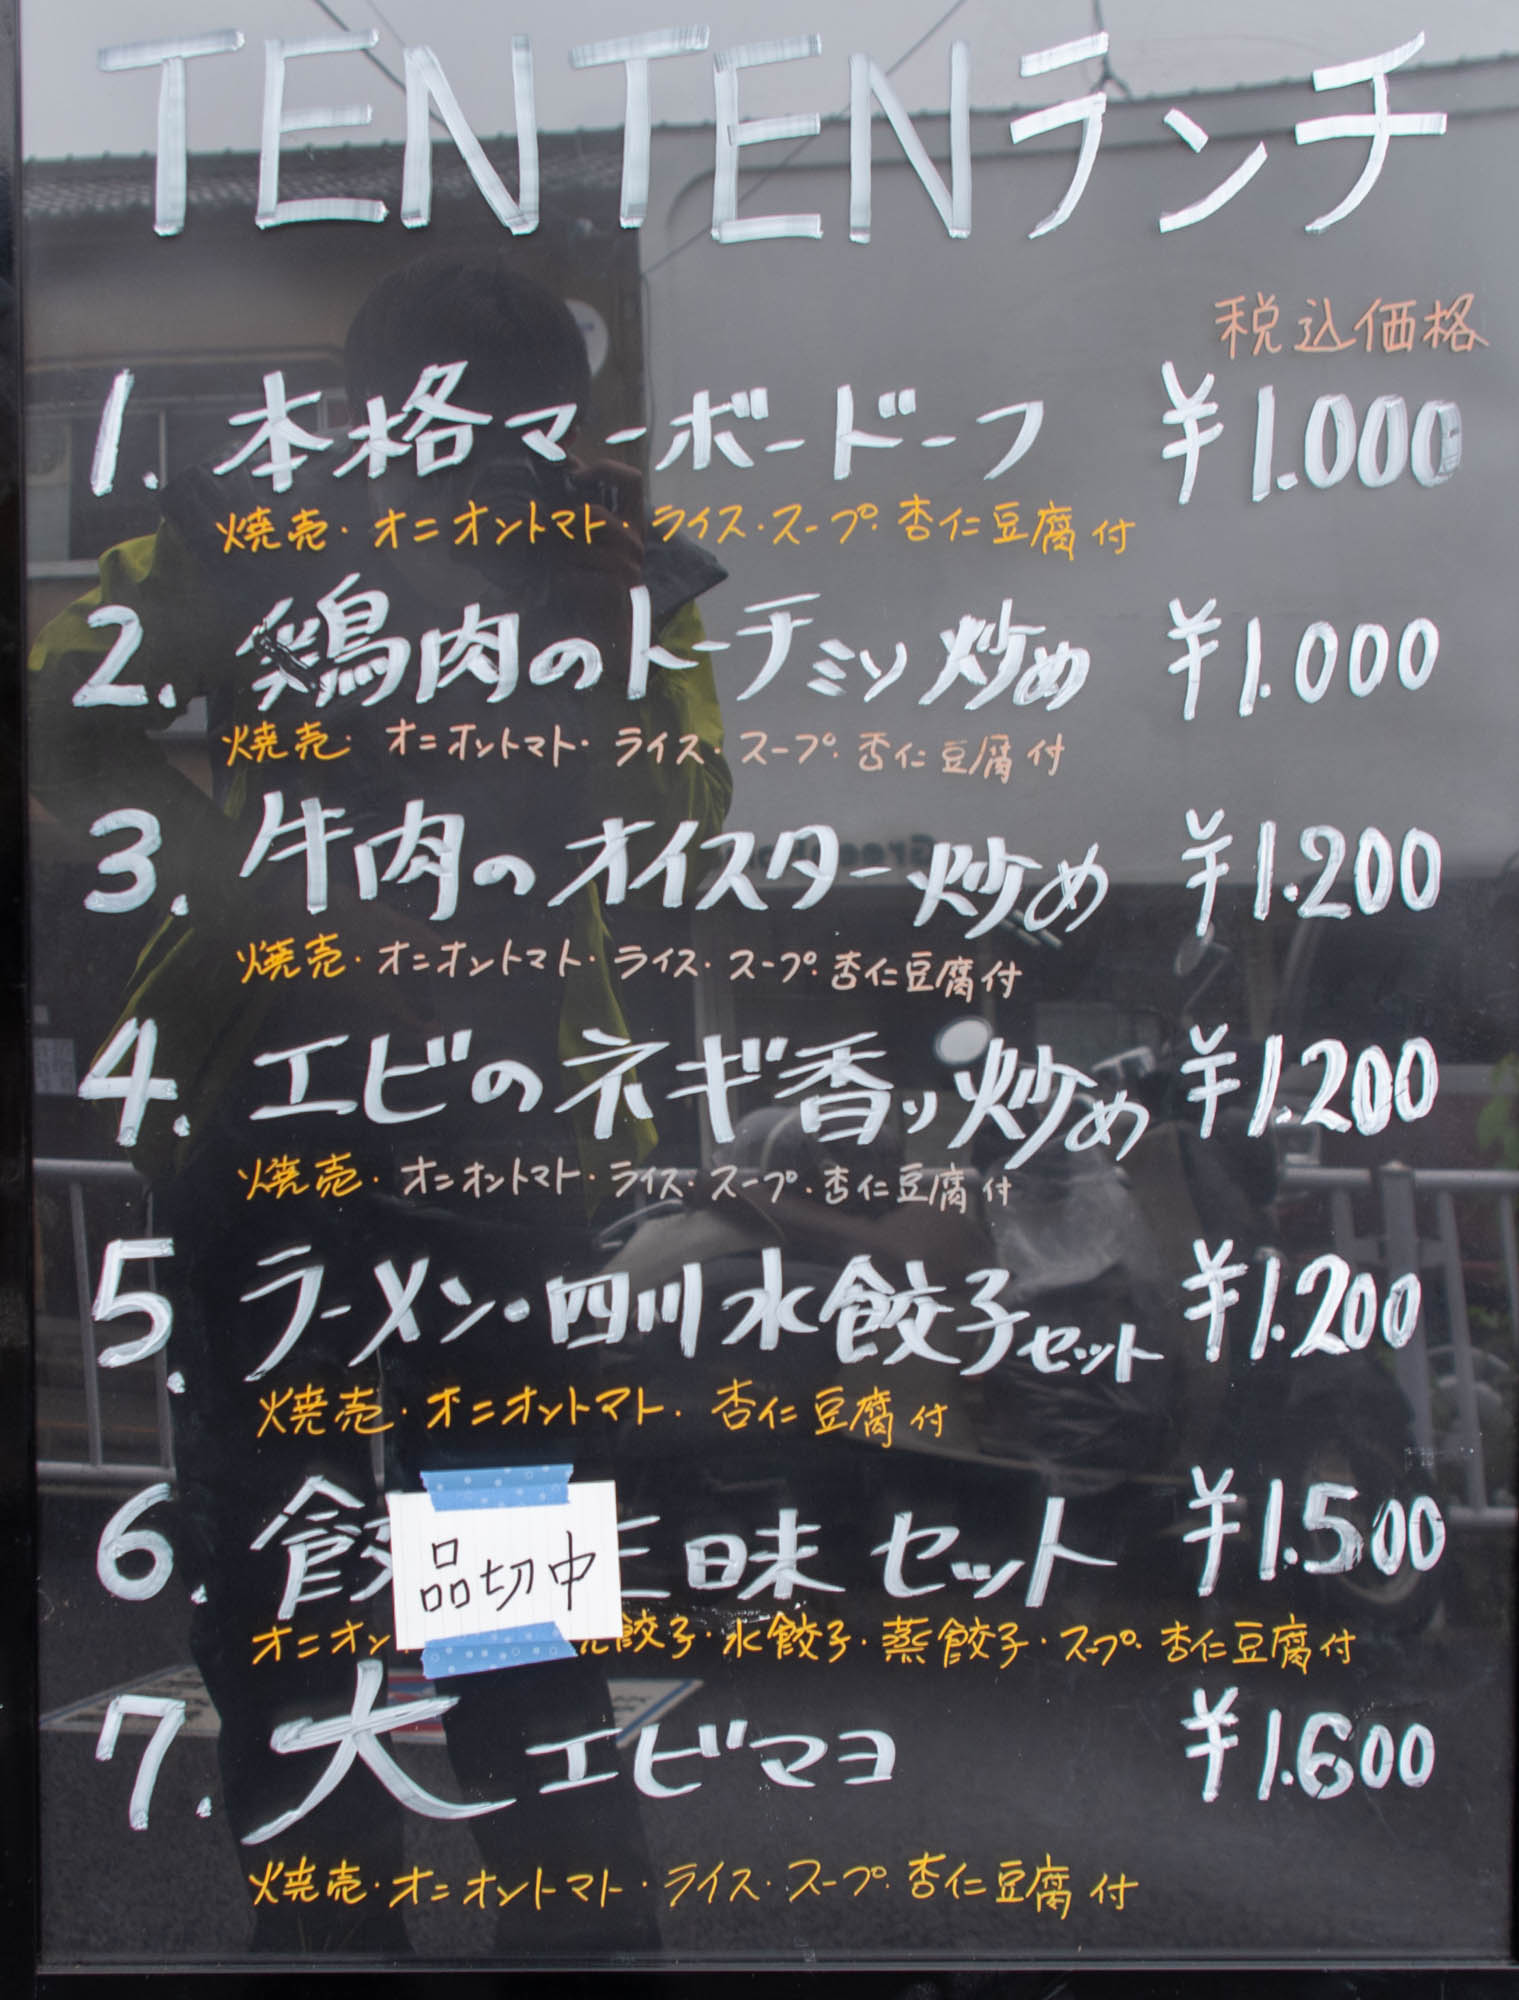 TENTENランチ
税込価格
1. 本格マーボードーフ ¥1.000
焼売・オニオントマト・ライス・スープ・杏仁豆腐付
2. 鶏肉のトーチミソ炒め ¥1.000
焼売・オニオントマト・ライス・スープ・杏仁豆腐付
3. 牛肉のオイスター炒め ¥1.200
焼売・オニオントマト・ライス・スープ・杏仁豆腐付
4. エビのネギ香り炒め ¥1.200
焼売・オニオントマト・ライス・スープ・杏仁豆腐付
5. ラーメン・四川水餃子セット ¥1.200
焼売・オニオントマト・杏仁豆腐付
6. 餃 三昧セット ¥1.500
品切中
オニオン 餃子・水餃子・蒸餃子・スープ・杏仁豆腐付
7. 大エビマヨ ¥1.600
焼売・オニオントマト・ライス・スープ・杏仁豆腐付